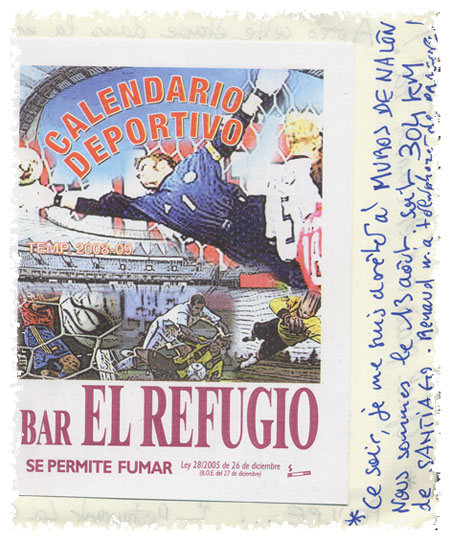 CALENDARIO
DEPORTIVO
TEMP. 2008-09
BAR EL REFUGIO
SE PERMITE FUMAR Ley 28/2005 de 26 de diciembre
(B.O.E. del 27 de diciembre)
* Ce soir, je me suis arrêté à MUROS DE NALÓN
Nous sommes le 13 août soit 304 KM
de SANTIAGO. Renaud m'a téléphoné
Après cette étape dans la